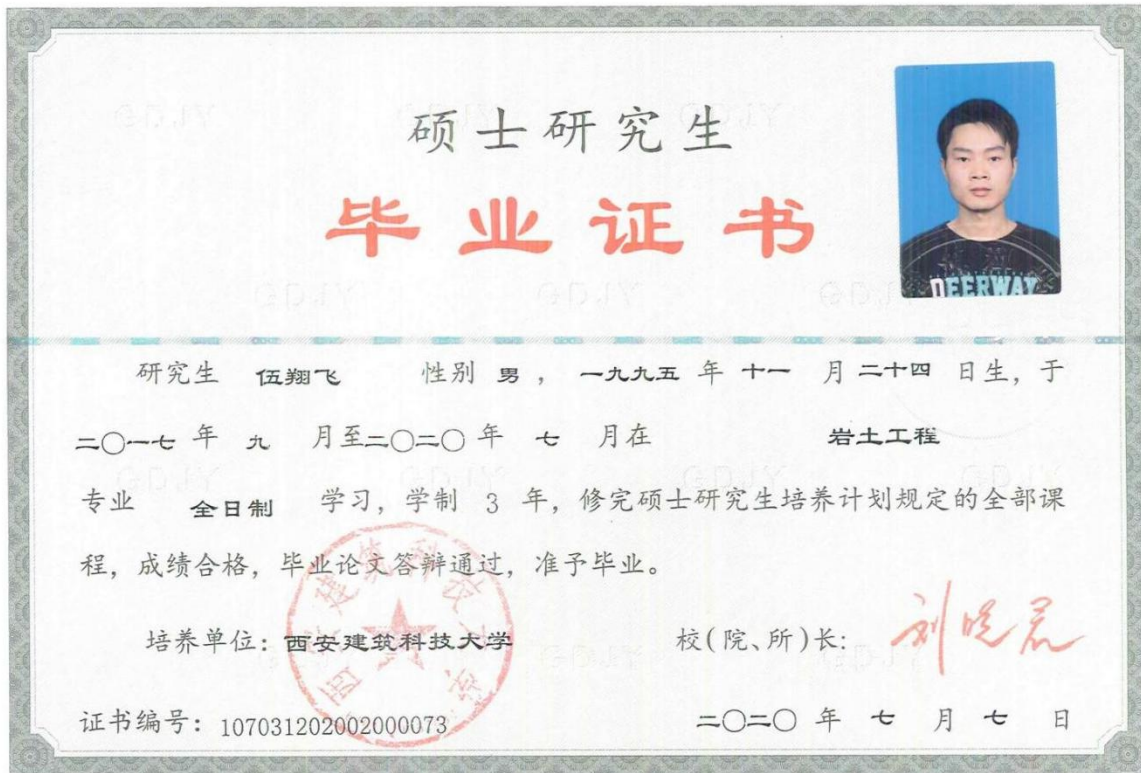 硕士研究生
毕业证书
DEERWAY
研究生 伍翔飞 性别 男 ，一九九五 年 十一 月 二十四 日生，于
二〇一七 年 九 月至二〇二〇 年 七 月在 岩土工程
专业 全日制 学习，学制 3 年，修完硕士研究生培养计划规定的全部课
程，成绩合格，毕业论文答辩通过，准予毕业。
西安建筑科技大学
培养单位：西安建筑科技大学 校(院、所)长： 刘晓君
证书编号：107031202002000073 二〇二〇 年 七 月 七 日